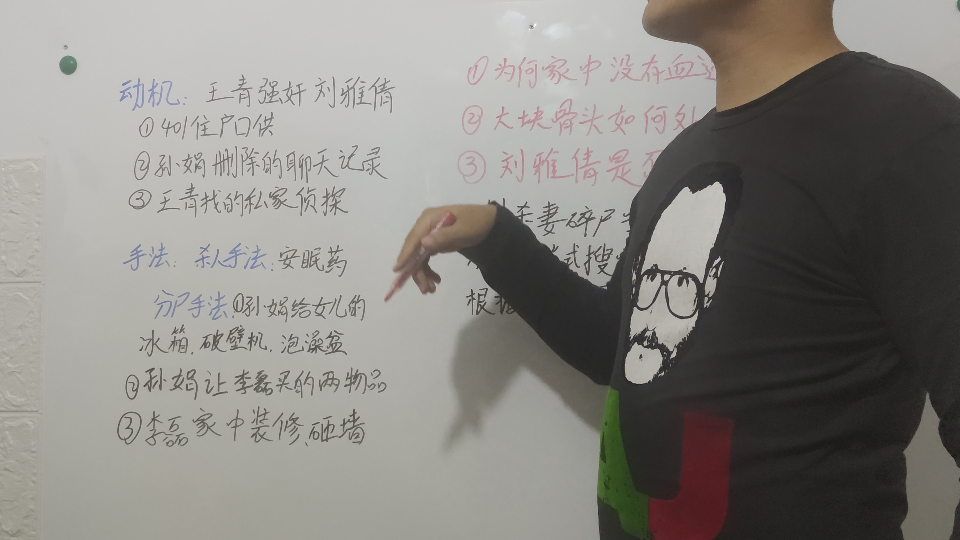 动机：王青强奸刘雅倩
①401住户口供
②孙娟删除的聊天记录
③王青找的私家侦探
手法：杀人手法：安眠药
分尸手法：①孙娟给女儿的
冰箱，破壁机，泡澡盆
②孙娟让李磊买的两物品
③李磊家中装修，砸墙
①为何家中没有血迹
②大块骨头如何处
③刘雅倩是否
杀妻碎尸
式搜
根据